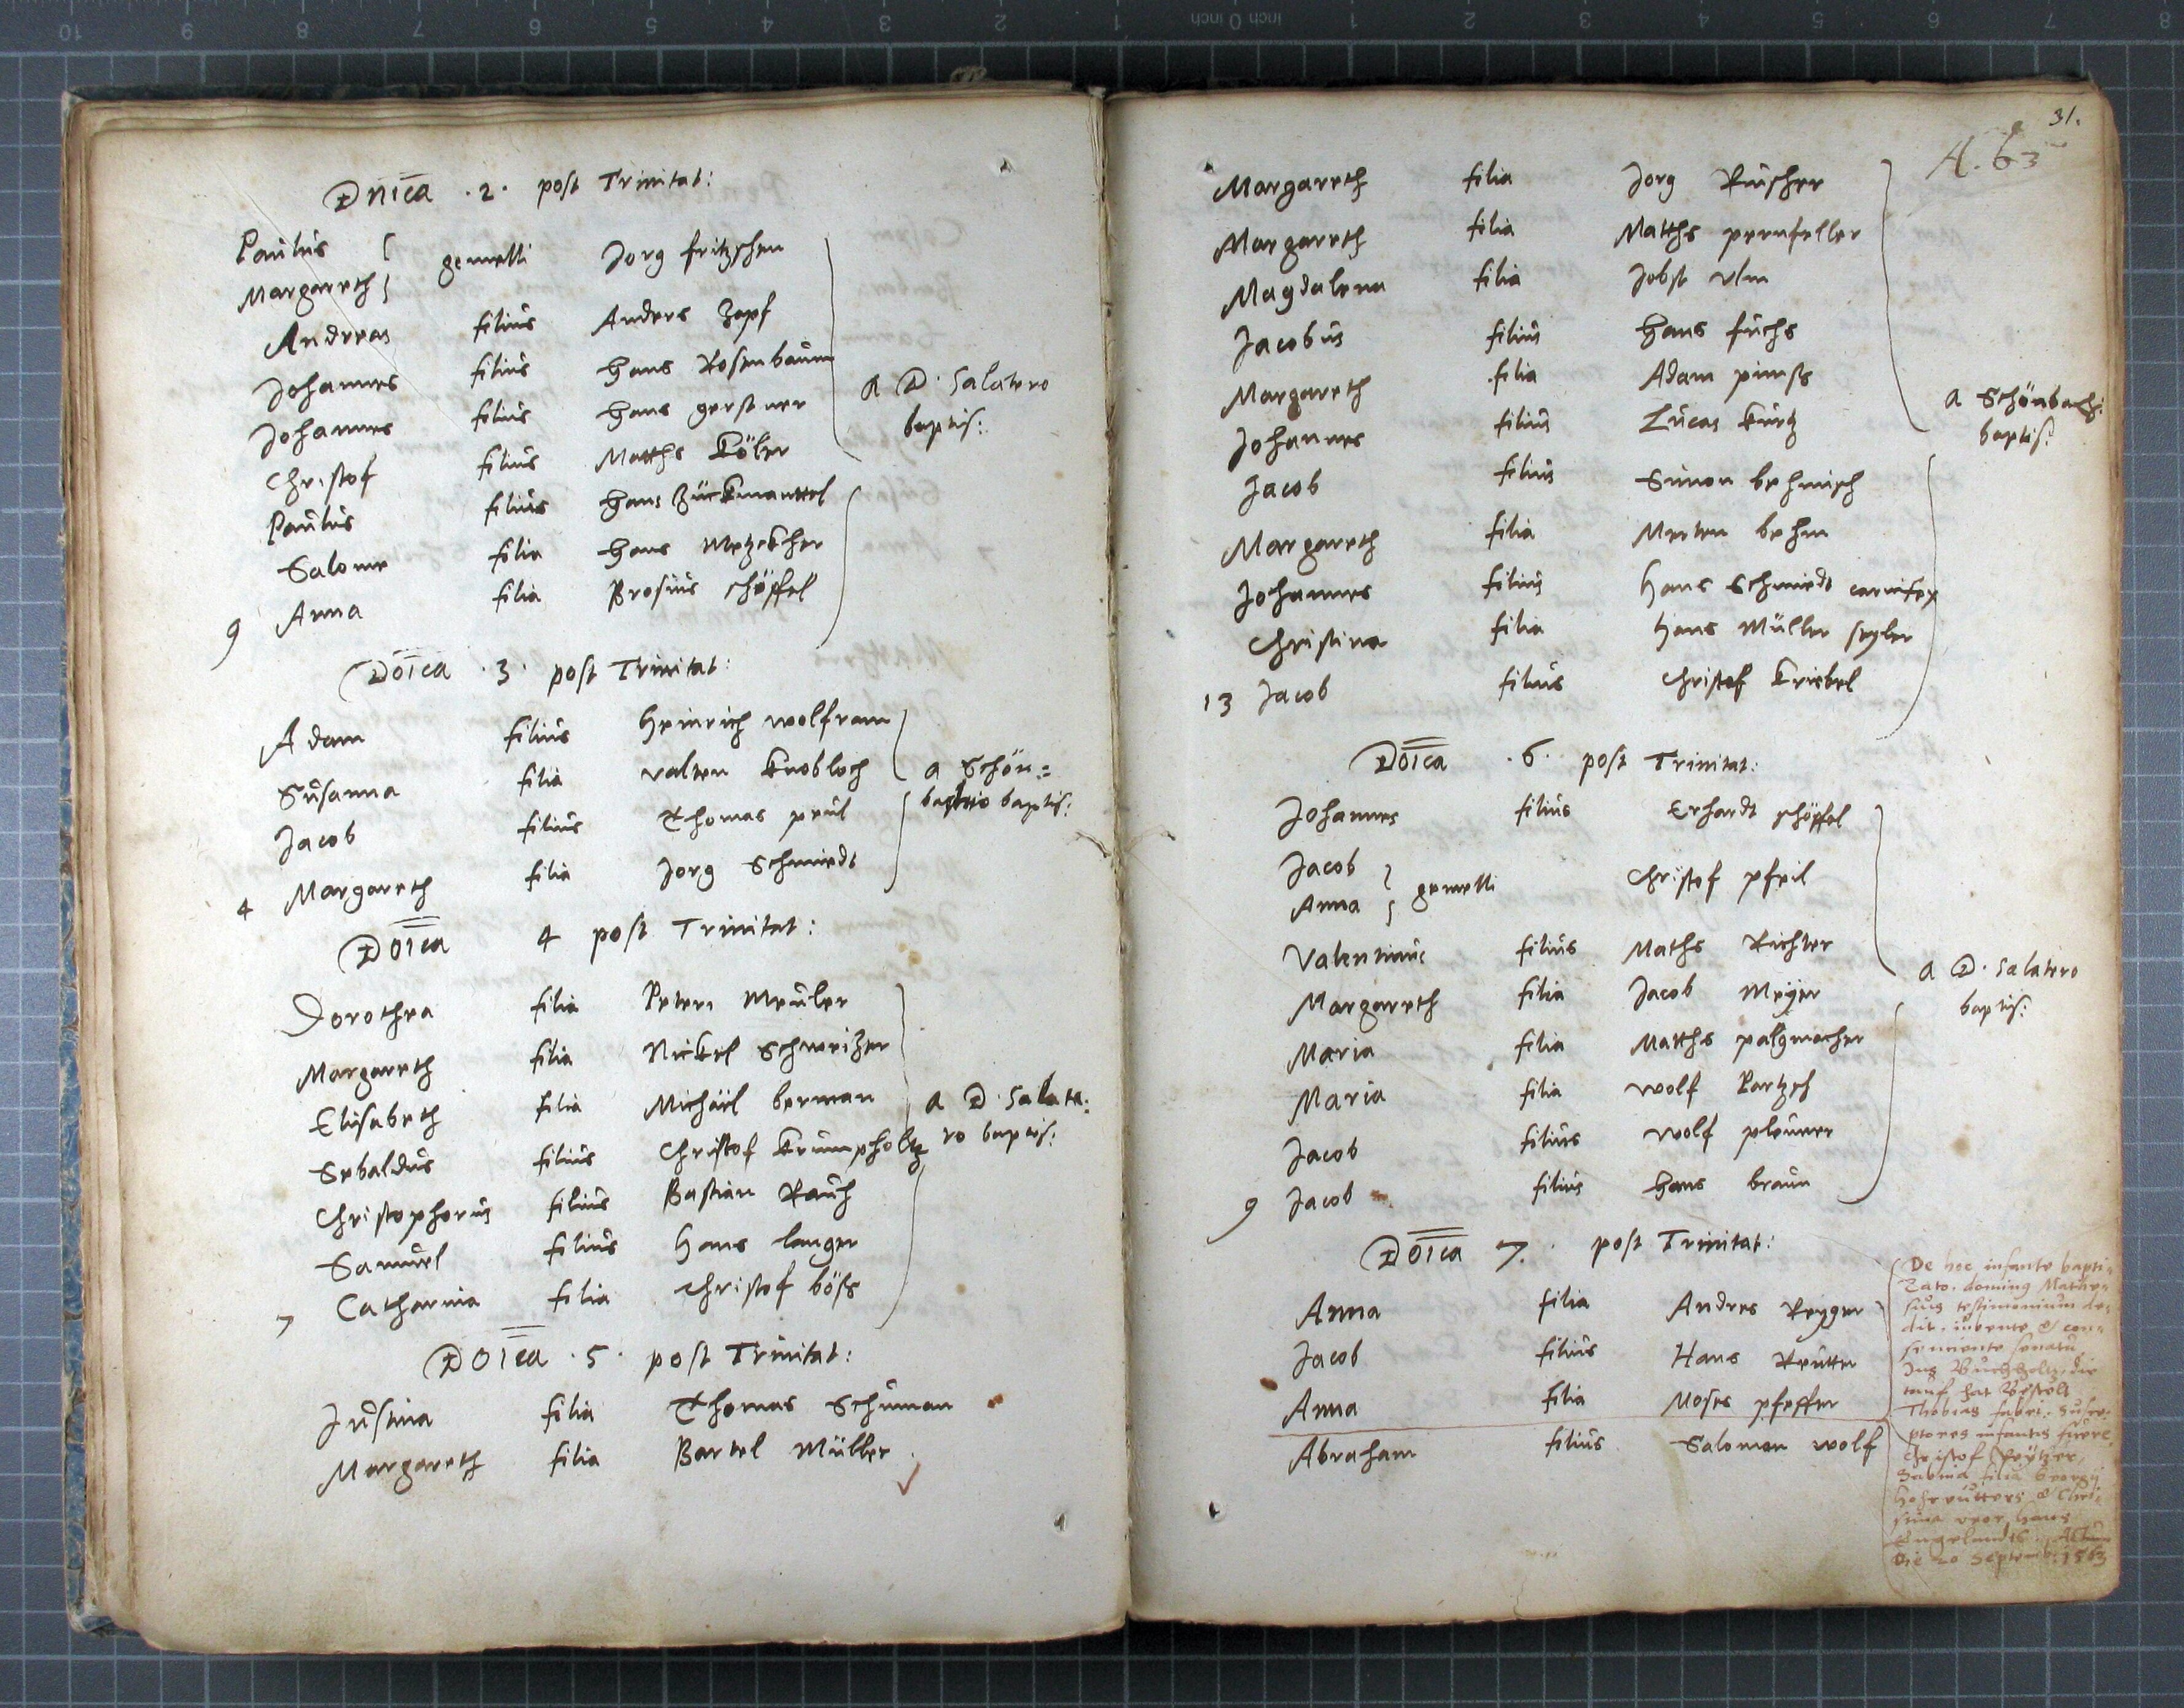 Dnica · 2 · post Trinitat:
Paulus
Margareth } gemelli Jorg fritzschen
Andreas filius Anders Zapf
Johannes filius Hans Rosenbaum
Johannes filius Hans gerstner
A D. Salatero
baptis:
Christof filius Matths Köler
Paulus filius Hans Zückmanttel
Salome filia Hans Metzekher
9 Anna filia Brosius schöpffel
Doica · 3 · post Trinitat:
Adam filius Heinrich wolfram
Susanna filia valten knobloch
a Schön=
bachio baptis:
Jacob filius Thomas preul
4 Margareth filia Jorg Schmiedt
Doica 4 post Trinitat:
Dorothea filia Peters Meuler
Margareth filia Nickel Schweizer
Elisabeth filia Michäel berman
a D. Salate:
ro baptis:
Sebaldus filius Christof krumpholtz
Christophorus filius Bastian Rauh
Samuel filius Hans langer
7 Catharina filia Christof böss
Doica · 5 · post Trinitat:
Justina filia Thomas Schuman
Margareth filia Bartel Müller
31.
A. 63
Margareth filia Jorg Ruscher
Margareth filia Matths pernfeller
Magdalena filia Jobst vlm
Jacobus filius Hans fuchs
Margareth filia Adam
Johannes filius Lucas kurtz
a Schönbachi:
baptis:
Jacob filius Simon behmisch
Margareth filia Merten behm
Johannes filius Hans Schmiedt carnifex
Christina filia Hans Müller seyler
13 Jacob filius Christof kriebel
Doica · 6 · post Trinitat:
Johannes filius Erhardt schöpffel
Jacob
Anna } gemelli Christof pfeil
Valentinus filius Maths Richter
Margareth filia Jacob Meyer
a D. Salatero
baptis:
Maria filia Matths palgmacher
Maria filia wolf Partzsch
Jacob filius wolf
9 Jacob filius Hans braun
Doica 7. post Trinitat:
Anna filia Andres Reyger
Jacob filius Hans Reutter
Anna filia Moses pfeffer
Abraham filius Salomon wolf
De hoc infante bapti=
zato. dominus Mathe=
sius testimonium de=
dit. iubente & con=
sentiente senatu.
die
tauf hat bestelt
Thobias fabri. Susce=
ptores infantis fuere
Christof
Sabina filia Georgij
& Chri=
stina vxor Hans
Engelandts. Actum
Die 20 Septemb: 1563